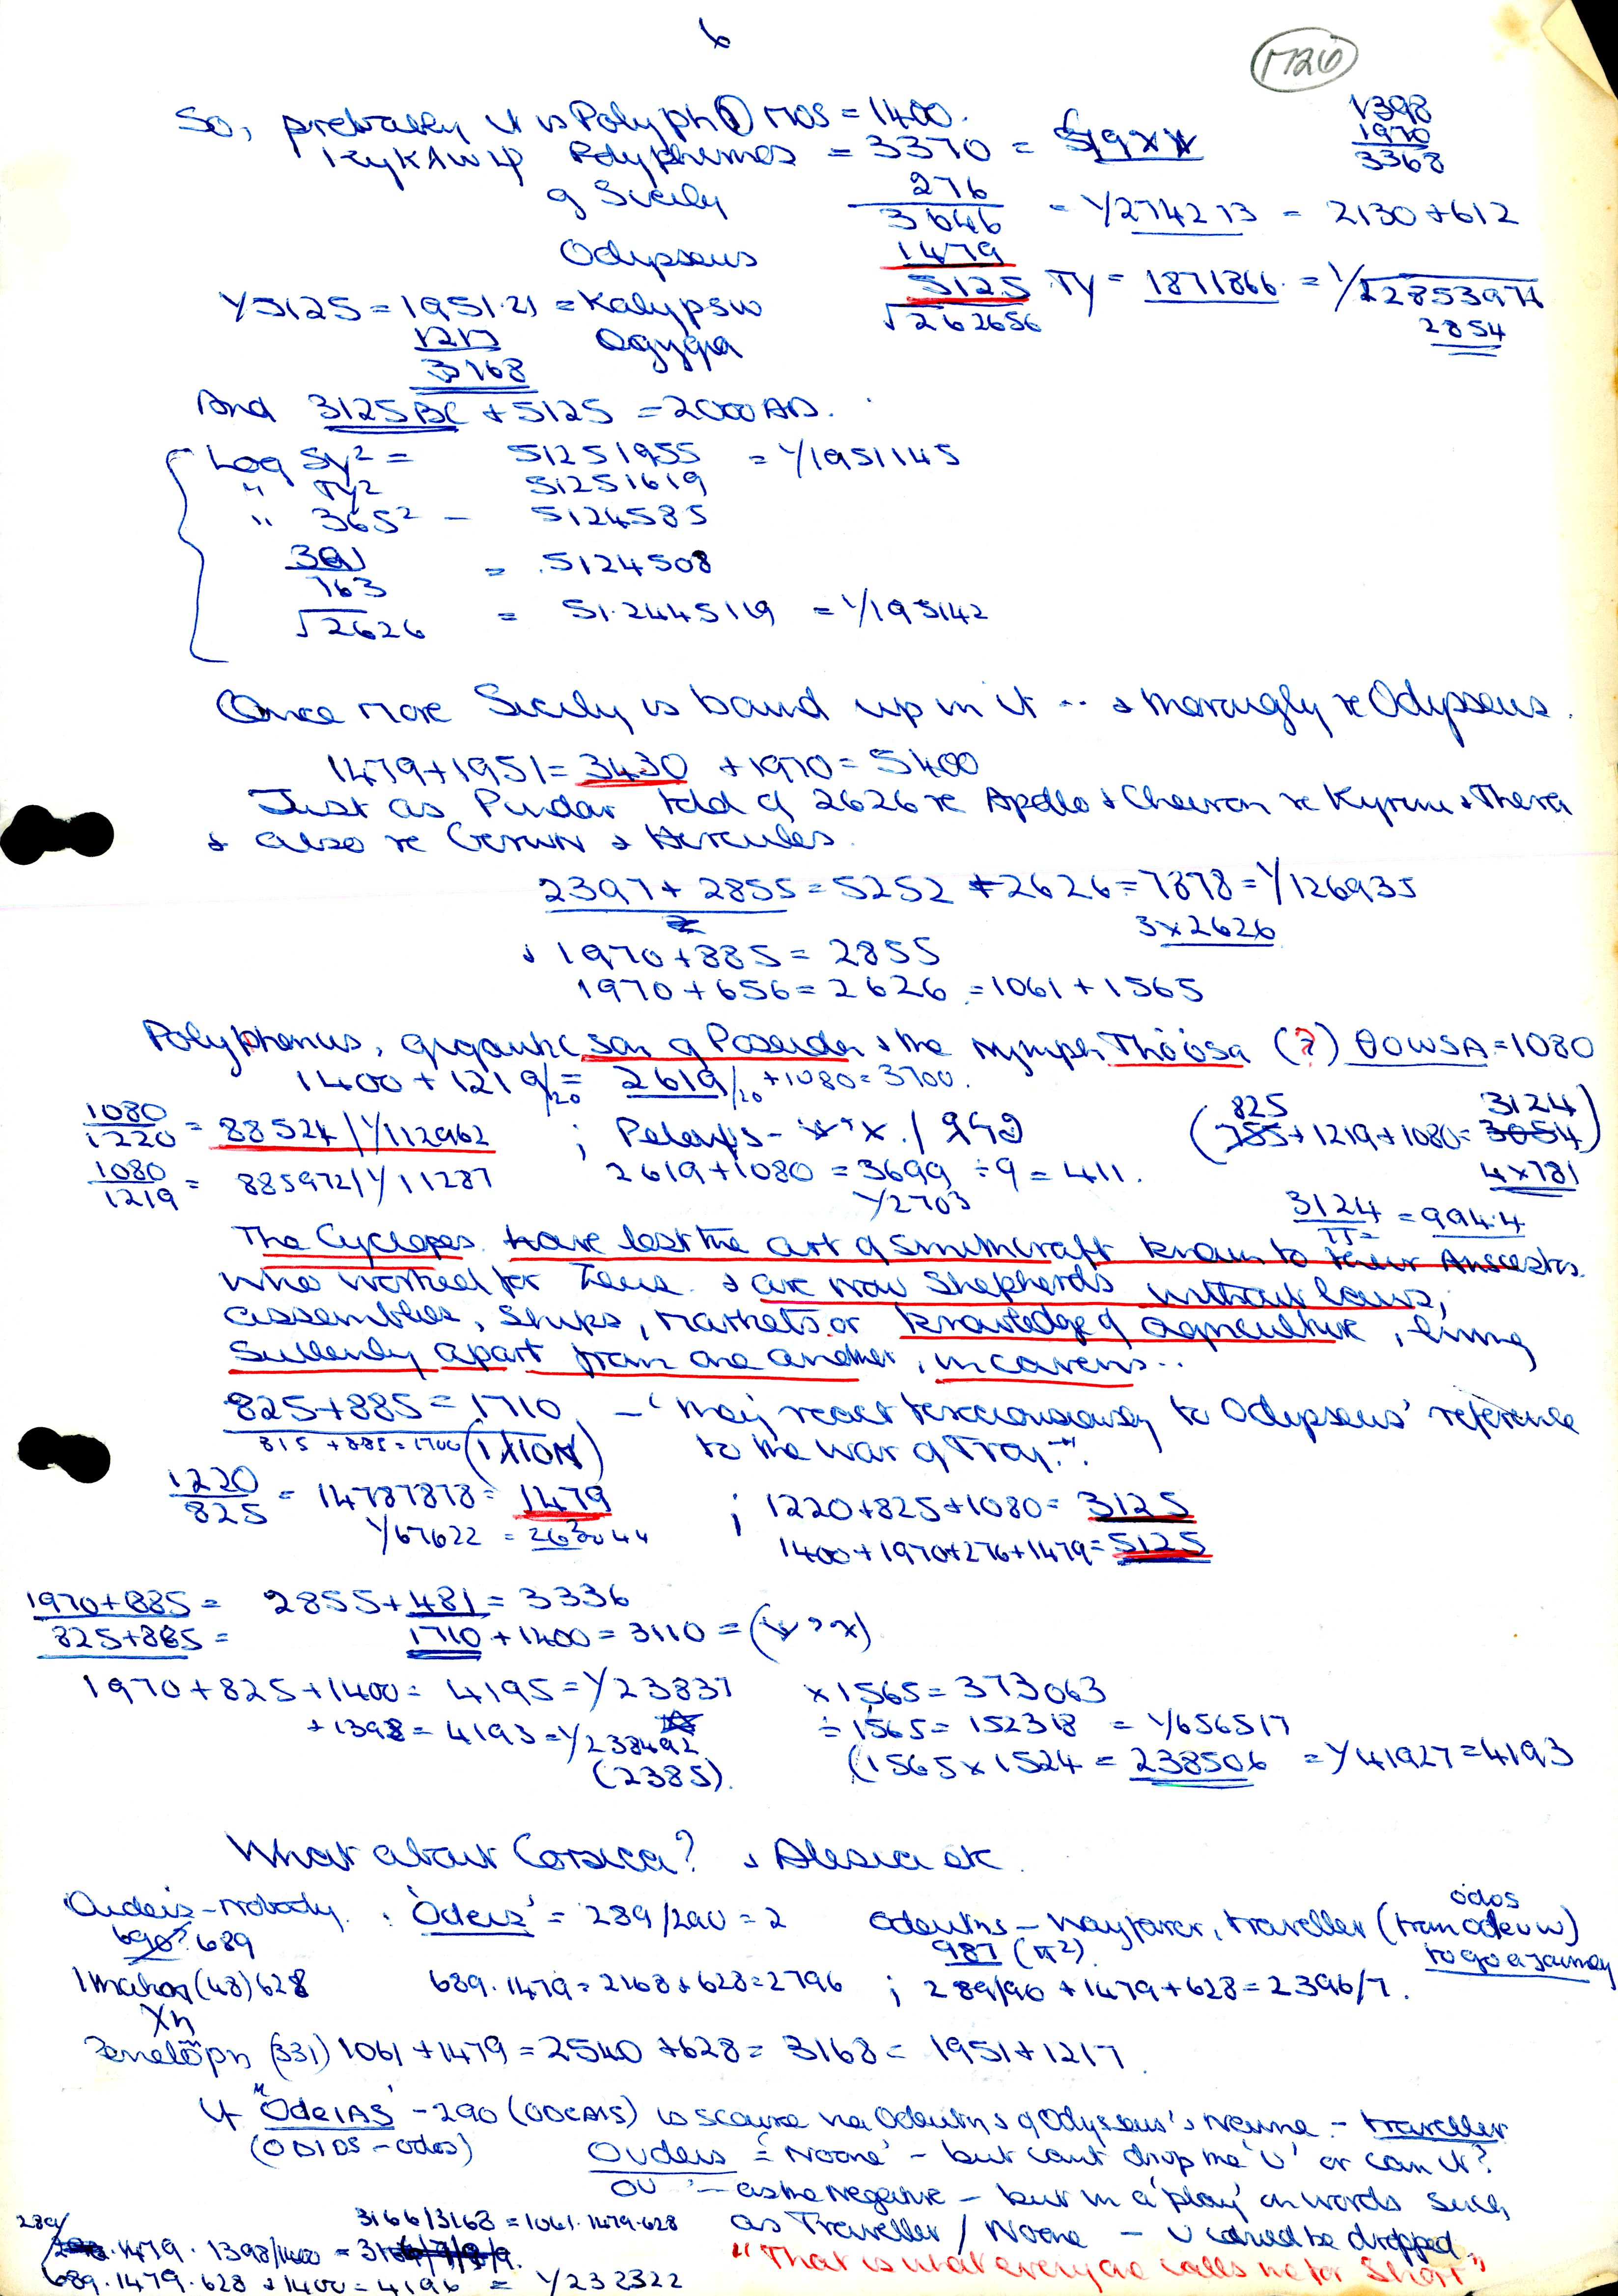 6
1726
So, probably it is Polyph(i)mos = 1400.
1398
1970
3368
Polyphemos = 3370 =
g Sicily 276
3646 = Y274273 = 2130 + 612
Odysseus 1479
5125 TY = 1871866 =
2854
√262656
Y5125 = 1951.21 = Kalypsw
1217 Ogygia
3168
And 3125 BC + 5125 = 2000 AD.
Log SY² = 51251955 = Y1951145
" TY² 51251619
" 365² - 5124585
391
763 = .5124508
√2626 = 51.2445119 = Y195142
Once more Sicily is bound up in it .. & thorougly re Odysseus.
1479 + 1951 = 3430 + 1970 = 5400
Just as Pindar told of 2626 re Apollo & Cheiron re Kyrene & Thera
& also re Geruwn & Hercules.
2397 + 2855 = 5252 + 2626 = 7878 = Y126935
3 x 2626
& 1970 + 885 = 2855
1970 + 656 = 2626 = 1061 + 1565
Polyphemus, gigantic son of Poseidon & the nymph Thöösa (?) θOWSA = 1080
1400 + 1219/20 = 2619/20 + 1080 = 3700.
1080
1220 = 88524 | Y112962 ;
(825 + 1219 + 1080 = 3124)
4 x 781
1080
1219 = 885972 | Y11287
2619 + 1080 = 3699 ÷ 9 = 411.
Y2703
3124
π = 994.4
The Cyclopes have lost the art of smithcraft known to their Ancestors
who worked for Zeus & are now shepherds without laws,
assemblies, ships, markets or knowledge of agriculture, living
sullenly apart from one another, in caverns ..
825 + 885 = 1710 - 'may react to Odysseus' reference
815 + 885 = 1700 (IXION) to the war of Troy."
1220
825 = 14787878 = 1479 ; 1220 + 825 + 1080 = 3125
Y67622 = 263044 1400 + 1970 + 276 + 1479 = 5125
1970 + 885 = 2855 + 481 = 3336
825 + 885 = 1710 + 1400 = 3110 =
1970 + 825 + 1400 = 4195 = Y23837 x 1565 = 373063
+ 1398 = 4193 = Y238492 ÷ 1565 = 152318 = Y656517
(2385). (1565 x 1524 = 238506 = Y41927 = 4193
What about Corsica? & Alesia etc
Oudeis - Nobody. 'Odeis' = 289/290 = 2 Odeutns - Wayfarer, traveller (from odeuw)
odos
690? 689 987 (π²) to go a journey
(48) 628 689 . 1479 = 2168 + 628 = 2796 ; 289/90 + 1479 + 628 = 2396/7.
Penelöpn (331) 1061 + 1479 = 2540 + 628 = 3168 = 1951 + 1217
If "OdeIAS' - 290 (ODEAIS) is source via Odeutns of Odysseus's Name - traveller
(ODIOS - odos) Oudeis = 'Noone' - but cant drop the 'U' or can it?
OU - as the negative - but in a 'play' on words such
3166/3168 = 1061 . 1479 . 628 as Traveller / Noone - U could be dropped.
289/
. 1479 . 1398/1400 =
"That is what everyone calls me for Short"
689 . 1479 . 628 + 1400 = 4196 = Y232322